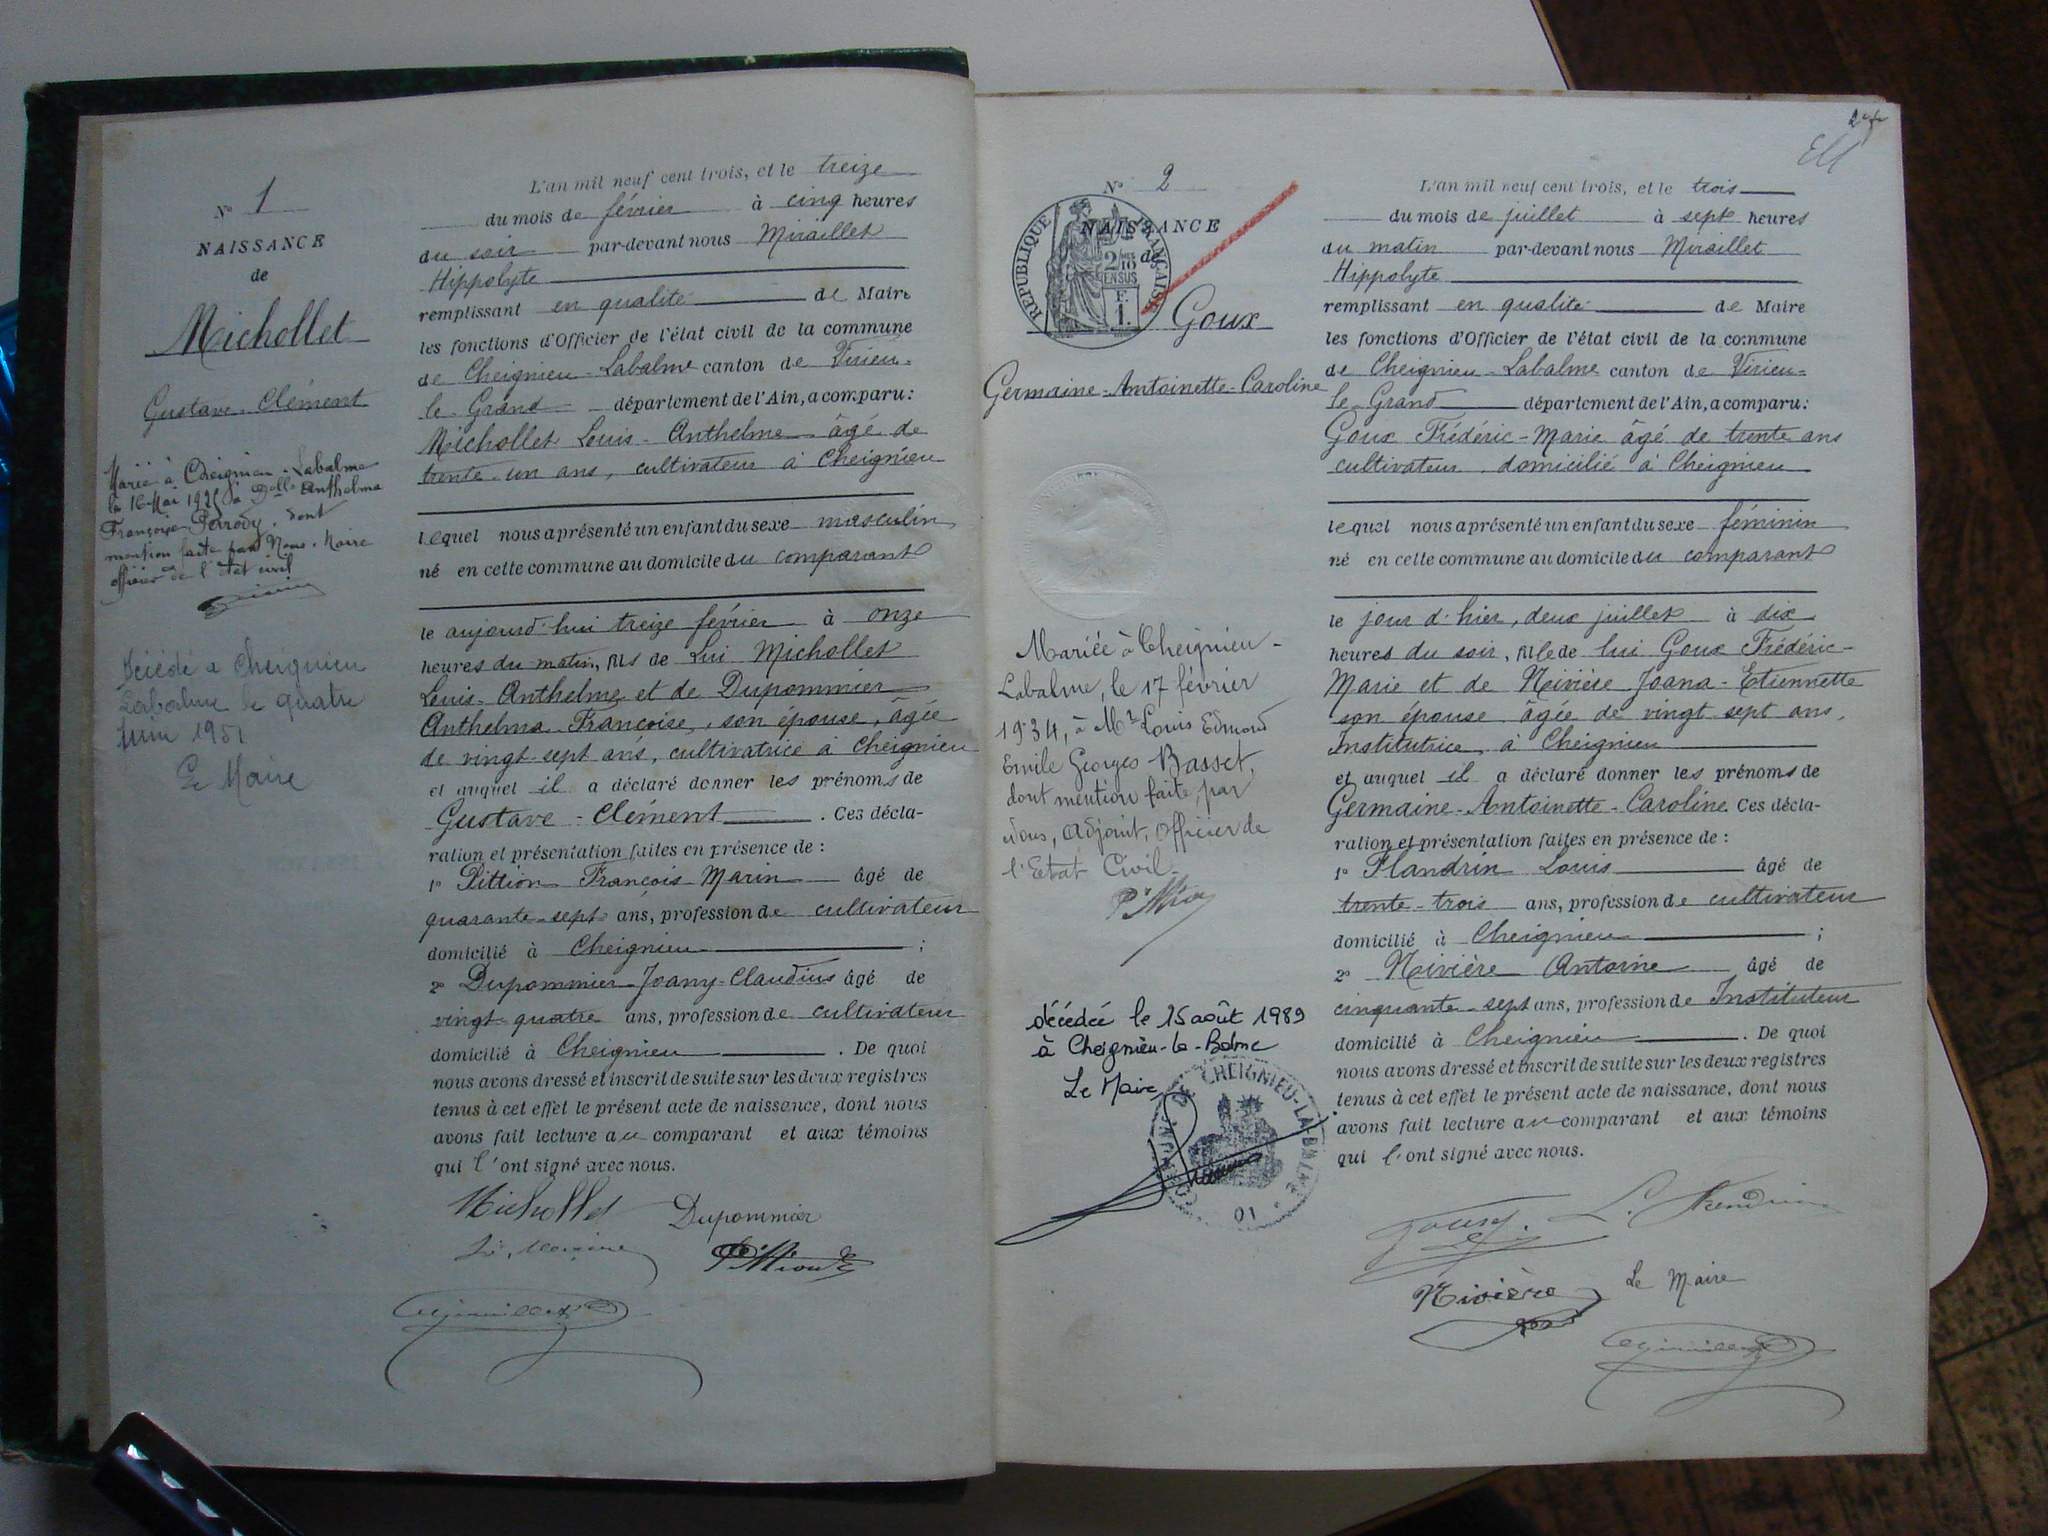 N° 1
NAISSANCE
de
Michollet
Gustave-Clément
Marié à Cheignieu-Labalme
le 16 Mai 1925 à Delle Anthelma
Françoise Perrody, dont
mention faite par Nous, Maire
officier de l'état civil
Décédé à Cheignieu
Labalme le quatre
Juin 1951
Le Maire
L'an mil neuf cent trois, et le treize
du mois de février à cinq heures
du soir par-devant nous Miraillet
Hippolyte
remplissant en qualité de Maire
les fonctions d'Officier de l'état civil de la commune
de Cheignieu-Labalme canton de Virieu-
le-Grand département de l'Ain, a comparu:
Michollet Louis-Anthelme âgé de
trente-un ans, cultivateur à Cheignieu
lequel nous a présenté un enfant du sexe masculin
né en cette commune au domicile du comparant
le aujourd'hui treize février à onze
heures du matin, fils de Lui Michollet
Louis-Anthelme et de Dupommier
Anthelma-Françoise, son épouse, âgée
de vingt-sept ans, cultivatrice à Cheignieu
et auquel il a déclaré donner les prénoms de
Gustave-Clément. Ces décla-
ration et présentation faites en présence de :
1° Pittion François-Marin âgé de
quarante-sept ans, profession de cultivateur
domicilié à Cheignieu ;
2° Dupommier Joany-Claudius âgé de
vingt-quatre ans, profession de cultivateur
domicilié à Cheignieu. De quoi
nous avons dressé et inscrit de suite sur les deux registres
tenus à cet effet le présent acte de naissance, dont nous
avons fait lecture au comparant et aux témoins
qui l'ont signé avec nous.
Michollet Dupommier
Le Maire
2
N° 2
NAISSANCE
de
RÉPUBLIQUE FRANÇAISE
2/10
EN SUS
F.
1.
Goux
Germaine-Antoinette-Caroline
Mariée à Cheignieu-
Labalme, le 17 février
1934, à Mr Louis Edmond
Emile Georges Basset,
dont mention faite par
Nous, Adjoint, Officier de
l'Etat Civil.
décédée le 15 août 1989
à Cheignieu-la-Balme
Le Maire
CHEIGNIEU-LA-BALME
01
L'an mil neuf cent trois, et le trois
du mois de juillet à sept heures
du matin par-devant nous Miraillet
Hippolyte
remplissant en qualité de Maire
les fonctions d'Officier de l'état civil de la commune
de Cheignieu-Labalme canton de Virieu-
le-Grand département de l'Ain, a comparu:
Goux Frédéric-Marie âgé de trente ans
cultivateur, domicilié à Cheignieu
lequel nous a présenté un enfant du sexe féminin
né en cette commune au domicile du comparant
le jour d'hier, deux juillet à dix
heures du soir, fille de lui Goux Frédéric-
Marie et de Nivière Joana-Etiennette
son épouse, âgée de vingt-sept ans,
Institutrice, à Cheignieu
et auquel il a déclaré donner les prénoms de
Germaine-Antoinette-Caroline. Ces décla-
ration et présentation faites en présence de :
1° Flandrin Louis âgé de
trente-trois ans, profession de cultivateur
domicilié à Cheignieu ;
2° Nivière Antoine âgé de
cinquante-sept ans, profession de Instituteur
domicilié à Cheignieu. De quoi
nous avons dressé et inscrit de suite sur les deux registres
tenus à cet effet le présent acte de naissance, dont nous
avons fait lecture au comparant et aux témoins
qui l'ont signé avec nous.
Goux F. L. Flandrin
Nivière Le Maire